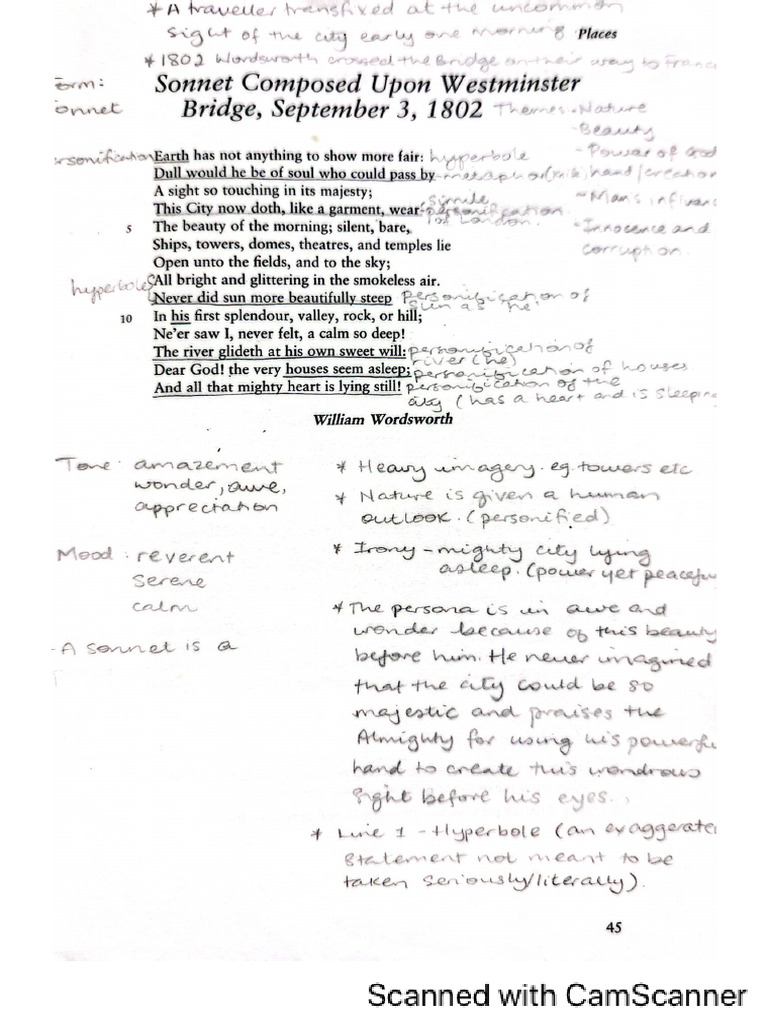 * A traveller transfixed at the uncommon
sight of the city early one morning
Places
* 1802 Wordsworth crossed the Bridge on their way to Franc
orm:
onnet
Sonnet Composed Upon Westminster
Bridge, September 3, 1802
Themes - Nature
- Beauty
- Power of God
hand/creation
- Man's
- Innocence and
corruption.
ersonification Earth has not anything to show more fair: hyperbole
Dull would he be of soul who could pass by - metaphor
A sight so touching in its majesty;
This City now doth, like a garment, wear simile personification of London.
5 The beauty of the morning; silent, bare,
Ships, towers, domes, theatres, and temples lie
Open unto the fields, and to the sky;
hyperbole All bright and glittering in the smokeless air.
Never did sun more beautifully steep personification of sun as he
10 In his first splendour, valley, rock, or hill;
Ne'er saw I, never felt, a calm so deep!
The river glideth at his own sweet will: personification of river (he)
Dear God! the very houses seem asleep; personification of houses
And all that mighty heart is lying still! personification of the
city (has a heart and is sleeping
William Wordsworth
Tone: amazement
wonder, awe,
appreciation
Mood: reverent
serene
calm
- A sonnet is a
* Heavy imagery. eg. towers etc
* Nature is given a human
outlook. (personified)
* Irony - mighty city lying
asleep. (power yet peacefu
* The persona is in awe and
wonder because of this beauty
before him. He never imagined
that the city could be so
majestic and praises the
Almighty for using his powerfu
hand to create this wondrous
sight before his eyes.
* Line 1 - Hyperbole (an exaggerate
statement not meant to be
taken seriously/literally).
45
Scanned with CamScanner